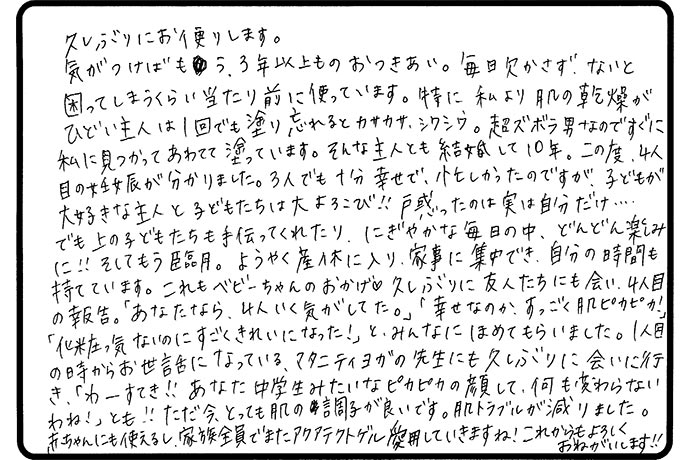 久しぶりにお便りします。
気がつけばもう、3年以上ものおつきあい。毎日欠かさず、ないと
困ってしまうくらい当たり前に使っています。特に私より肌の乾燥が
ひどい主人は1回でも塗り忘れるとカサカサ、シクシク。超ズボラ男なのですぐに
私に見つかってあわてて塗っています。そんな主人とも結婚して10年。この度、4人
目の妊娠が分かりました。3人でも十分幸せで、忙しかったのですが、子どもが
大好きな主人と子どもたちは大よろこび!!戸惑ったのは実は自分だけ・・・・
でも上の子どもたちも手伝ってくれたり、にぎやかな毎日の中、どんどん楽しみ
に!!そしてもう臨月。ようやく産休に入り、家事に集中でき、自分の時間も
持てています。これもベビーちゃんのおかげ♡久しぶりに友人たちにも会い、4人目
の報告。「あなたなら、4人いく気がしてた。」「幸せなのか、すっごく肌ピカピカ!」
「化粧っ気ないのにすごくきれいになった!」と、みんなにほめてもらいました。1人目
の時からお世話になっている、マタニティヨガの先生にも久しぶりに会いに行
き、「わーすてき!!あなた中学生みたいなピカピカの顔して、何も変わらない
わね!」とも!!ただ今、とっても肌の調子が良いです。肌トラブルが減りました。
赤ちゃんにも使えるし、家族全員でまたアクアテクトゲル愛用していきますね!これからもよろしく
おねがいします!!